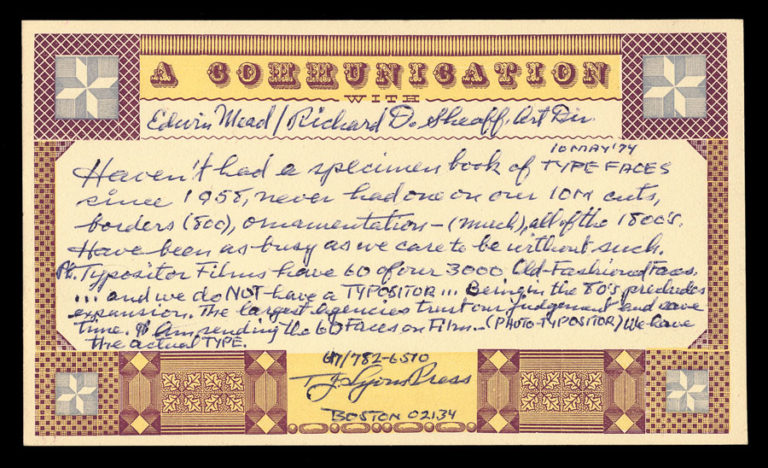 A COMMUNICATION
WITH
Edwin Mead/Richard D. Sheaff, Art Dir.
10 MAY '74
Haven't had a specimen book of TYPE FACES
since 1958, never had one on our 10M cuts,
borders (800), ornamentation - (much), all of the 1800's.
Have been as busy as we care to be without such.
Ph. Typositor Films have 60 of our 3000 Old-Fashioned Faces
... and we do NOT have a TYPOSITOR ... Being in the 80's precludes
expansion. The largest agencies trust our judgement and save
time. Am sending the 60 Faces on Film... (PHOTO-TYPOSITOR) We have
the actual TYPE.
617/782-6510
TJ Lyons Press
BOSTON 02134